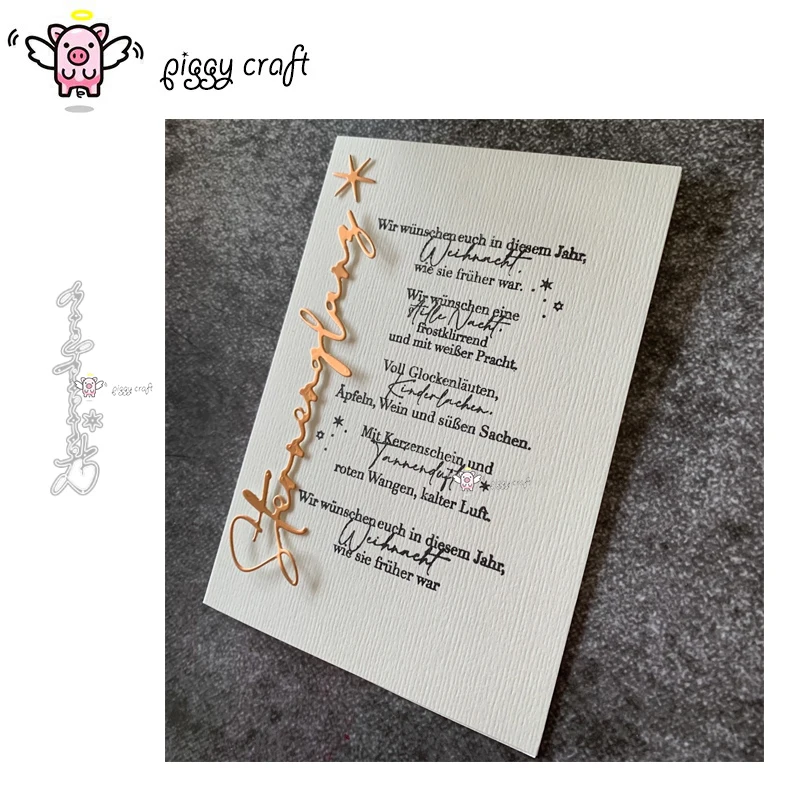 piggy craft
Sternenglanz
Wir wünschen euch in diesem Jahr,
Weihnacht.
wie sie früher war.
Wir wünschen eine
stille Nacht.
frostklirrend
und mit weißer Pracht.
Voll Glockenläuten,
Kinderlachen.
Äpfeln, Wein und süßen Sachen.
Mit Kerzenschein und
Tannenduft
roten Wangen, kalter Luft.
Wir wünschen euch in diesem Jahr,
Weihnacht
wie sie früher war
piggy craft
piggy craft